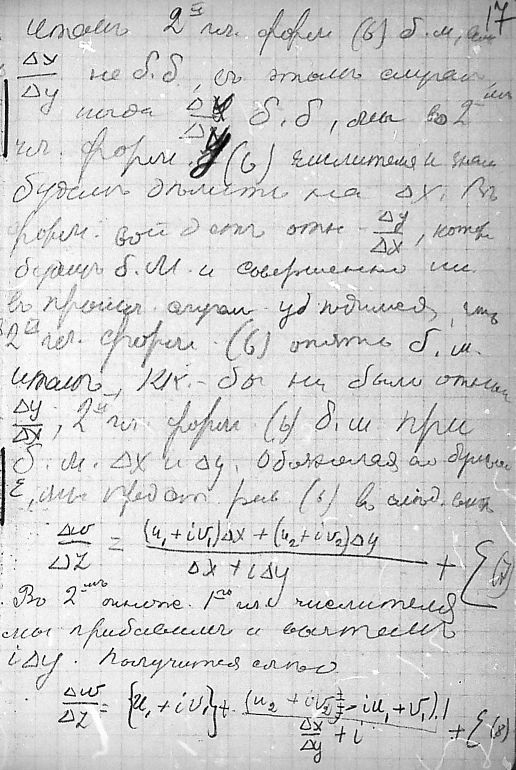 17
итакъ 2й чл. форм (6) б.м, если
Δx/Δy не б.б, въ этомъ случаѣ,
когда Δx/Δy б.б, мы во 2мъ
чл. форм. (6) числителя и знам
будемъ дѣлить на Δx. Въ
форм. войдетъ отн. Δy/Δx, котор
будетъ б.м. и совершенно
въ прошл. случ. убѣдимся, что
2й чл. форм. (6) опять б.м.
итакъ, как бы ни было отнош
Δy/Δx, 2й чл. форм (6) б.м при
б.м. Δx и Δy. Обозначая его буквой
ε, мы предст рав (6) въ слѣд. видѣ
Δw/Δz = (u₁+iv₁)Δx+(u₂+iv₂)Δy / Δx+iΔy + ξ (7)
Во 2мъ множ. 1го чл числителя
мы прибавимъ и вычтемъ
iΔy. Получится
Δw/Δz = {u₁+iv₁}+ (u₂+iv₂-iu₁+v₁).1 / Δx/Δy+i + ξ (8)